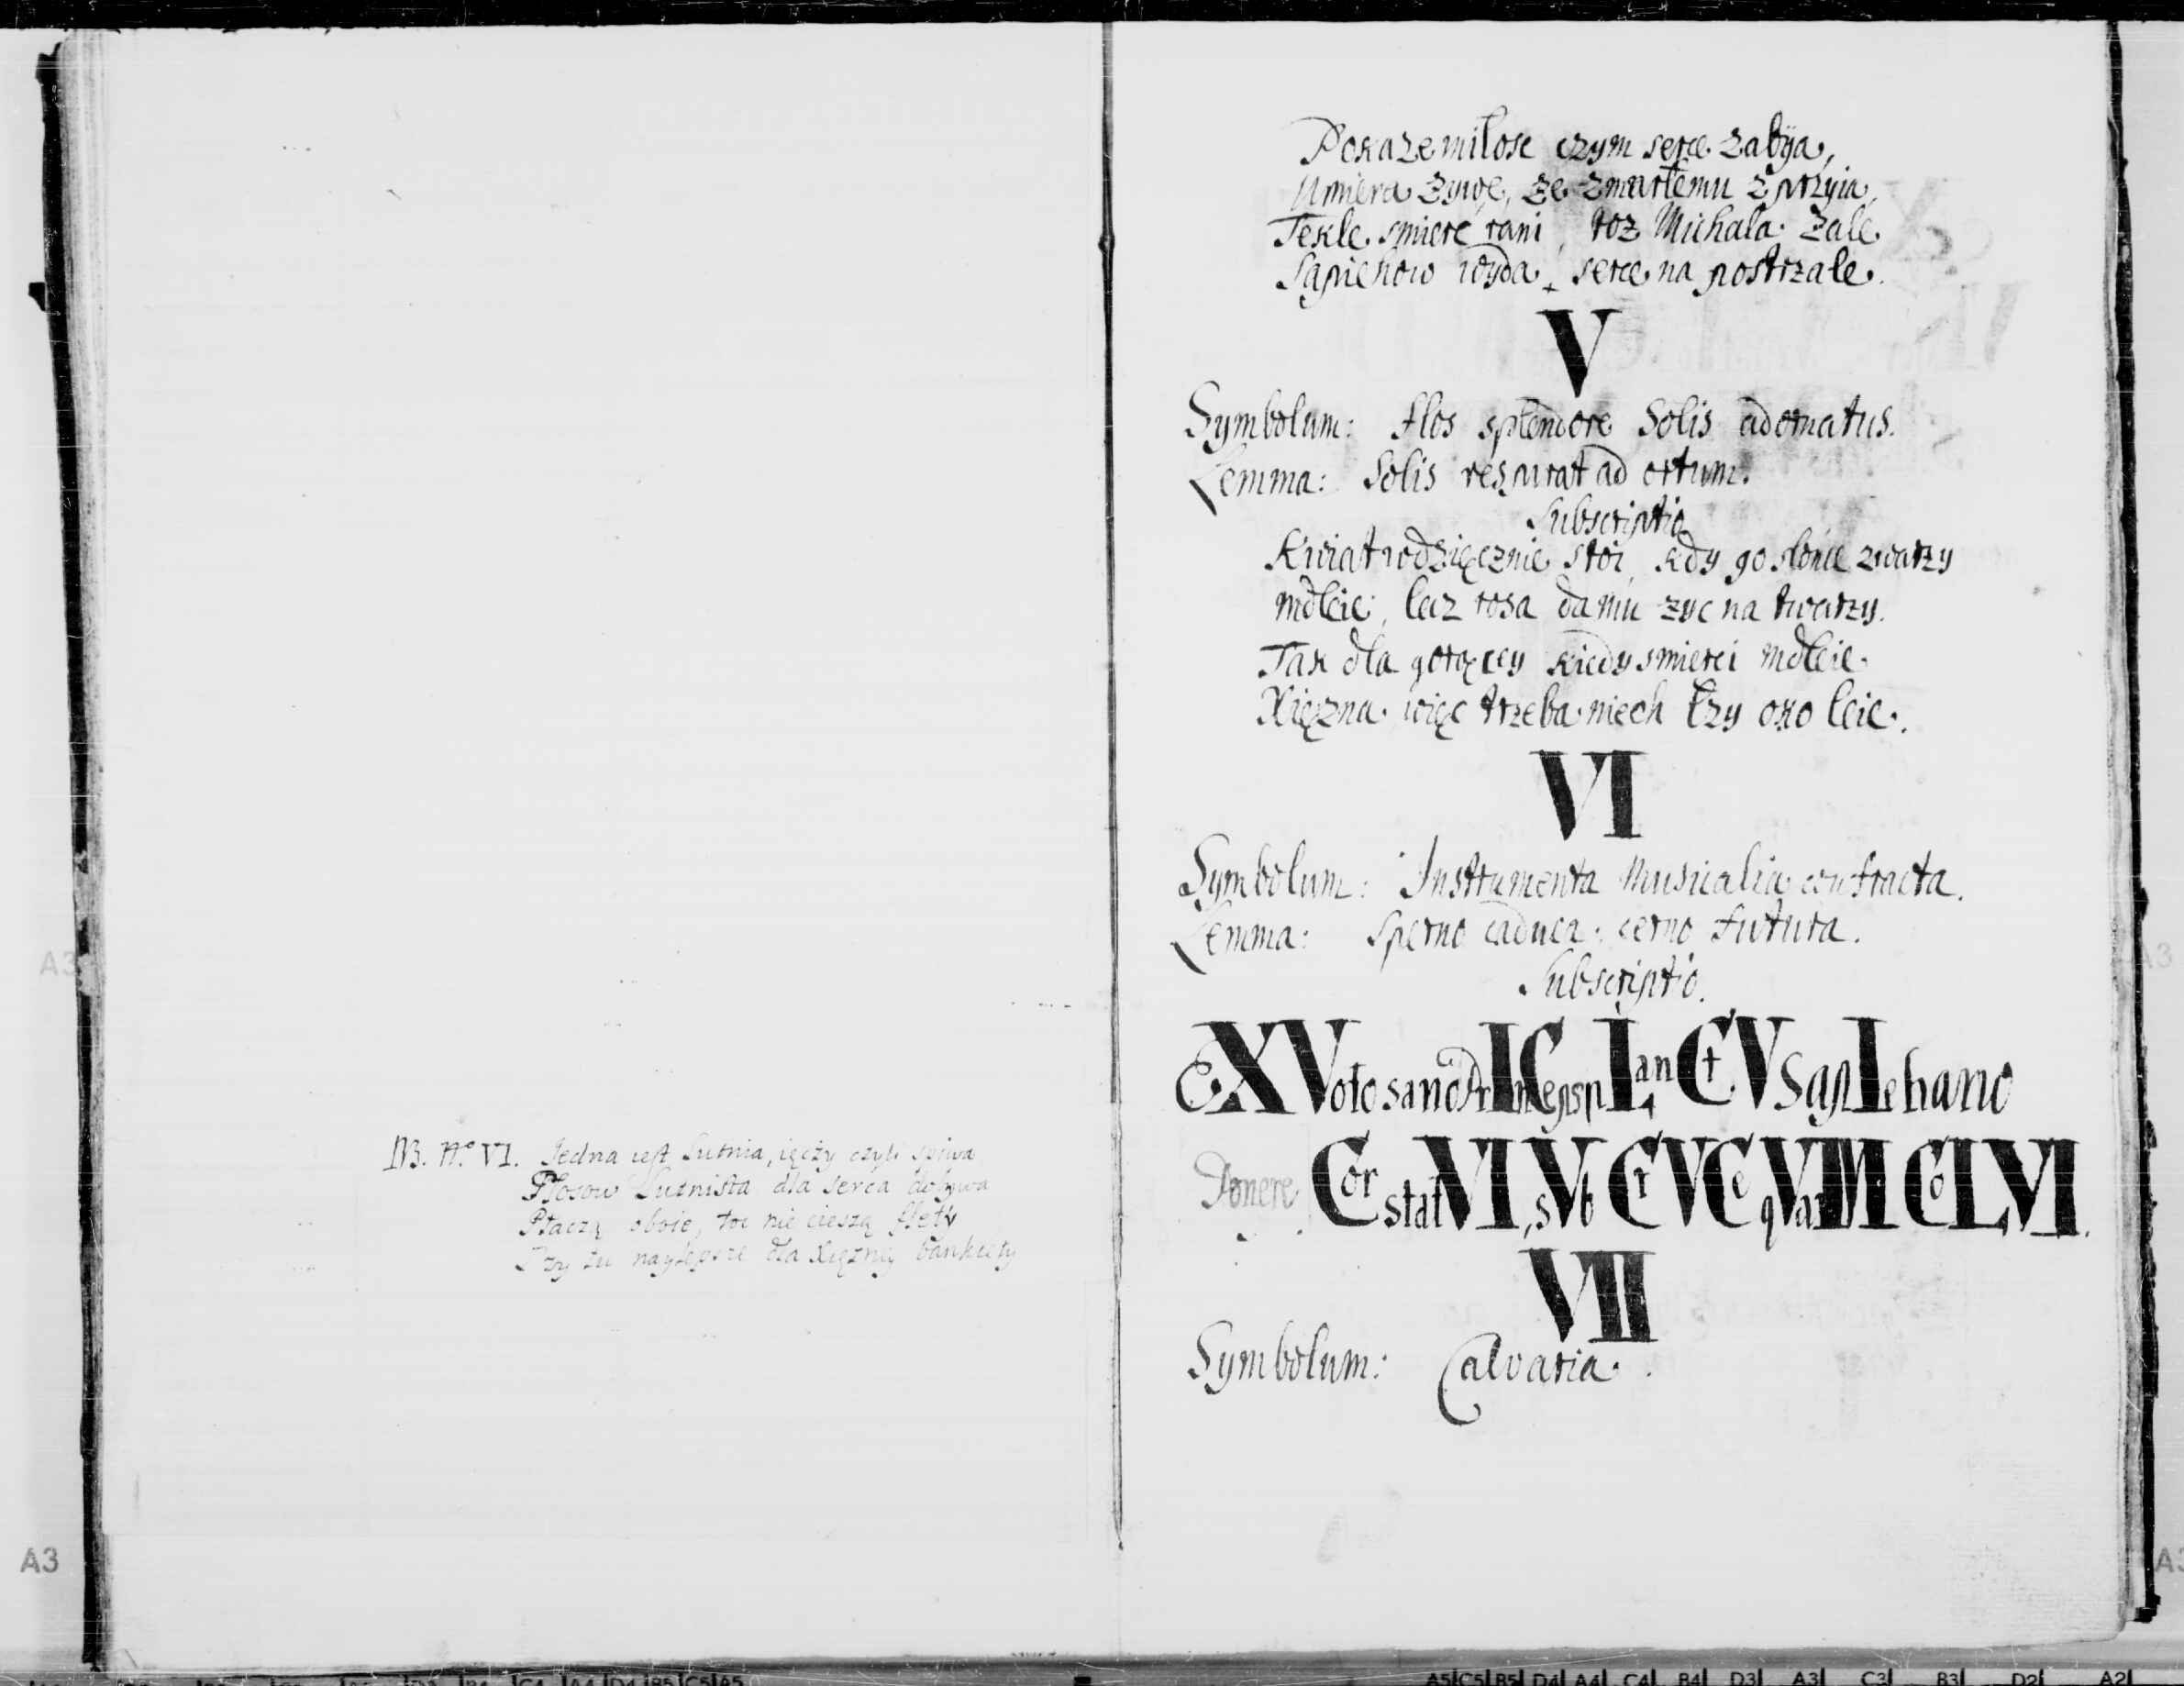 NB. Nº VI. Jedna iest Lutnia, ięczy czyli spiwa
Głosow Lutnista dla serca dobywa
Płaczą oboie, toc nie cieszą flety
Łzy tu naylepsze dla Xiężny bankiety
Pokaze milosc czym serce zabija,
Umiera zywe, ze zmarłemu zprzyia,
Tekle smierc rani, toz Michała zale
Sapiehow wyda, serce na postrzałe.
V
Symbolum: flos splendore Solis adornatus.
Lemma: Solis respirat ad ortum.
Subscriptio
Kwiat wdzięcznie stoi, kdy go słonce zwarzy
mdleie, lecz rosa da mu zyc na twarzy.
Tak dla gorącey kiedy smierci mdleie
Xięzna więc trzeba niech łzy oko leie.
VI
Symbolum: Instrumenta Musicalia confracta.
Lemma: Sperno caduca, cerno futura.
Subscriptio.
EX Voto sano PrInCeps pLanCtV SapIehano
Ponere Cor stat VI, sVb CrVCe qVaM CoLVI.
VII
Symbolum: Calvaria.
A3
A3
A3
A3
A5 C5 B5 D4 A4 C4 B4 D3 A3 C3 B3 D2 A2